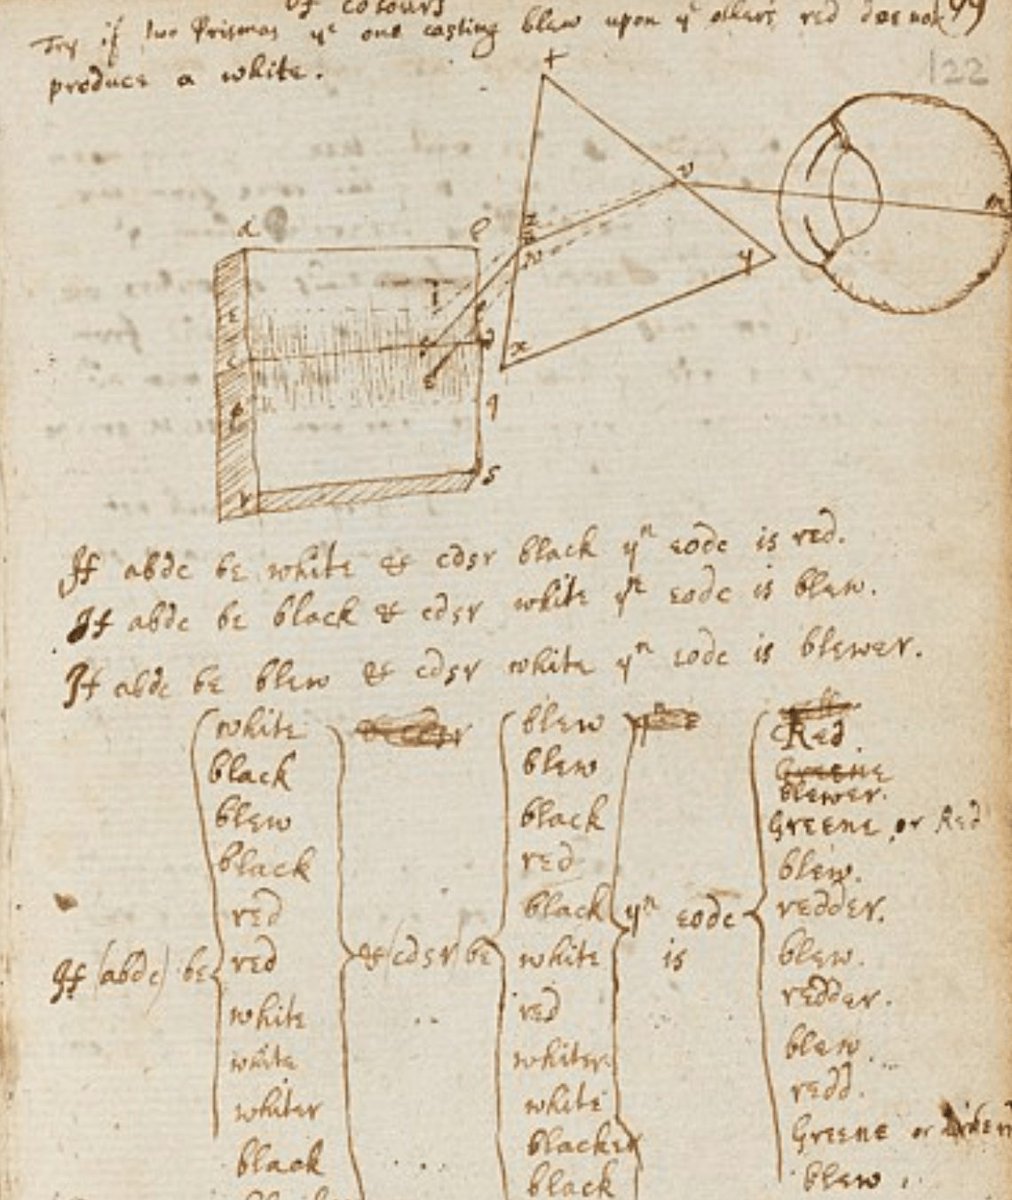 Of colours
Try if two Prismas yᵉ one casting blew upon yᵉ other's red doe not
122
produce a white.
t
v
a
y
x
r
s
q
If abdc be white & cdsr black yⁿ eodc is red.
If abdc be black & cdsr white yⁿ eodc is blew.
If abdc be blew & cdsr white yⁿ eodc is blewer.
white blew Red.
black blew Greene
blewer.
blew black Greene or Red
black red blew.
red black redder.
If (abdc) be red & (cdsr) be white yⁿ eodc is blew.
white red redder.
white whiter blew.
whiter white redd.
black blacker Greene or
black blew